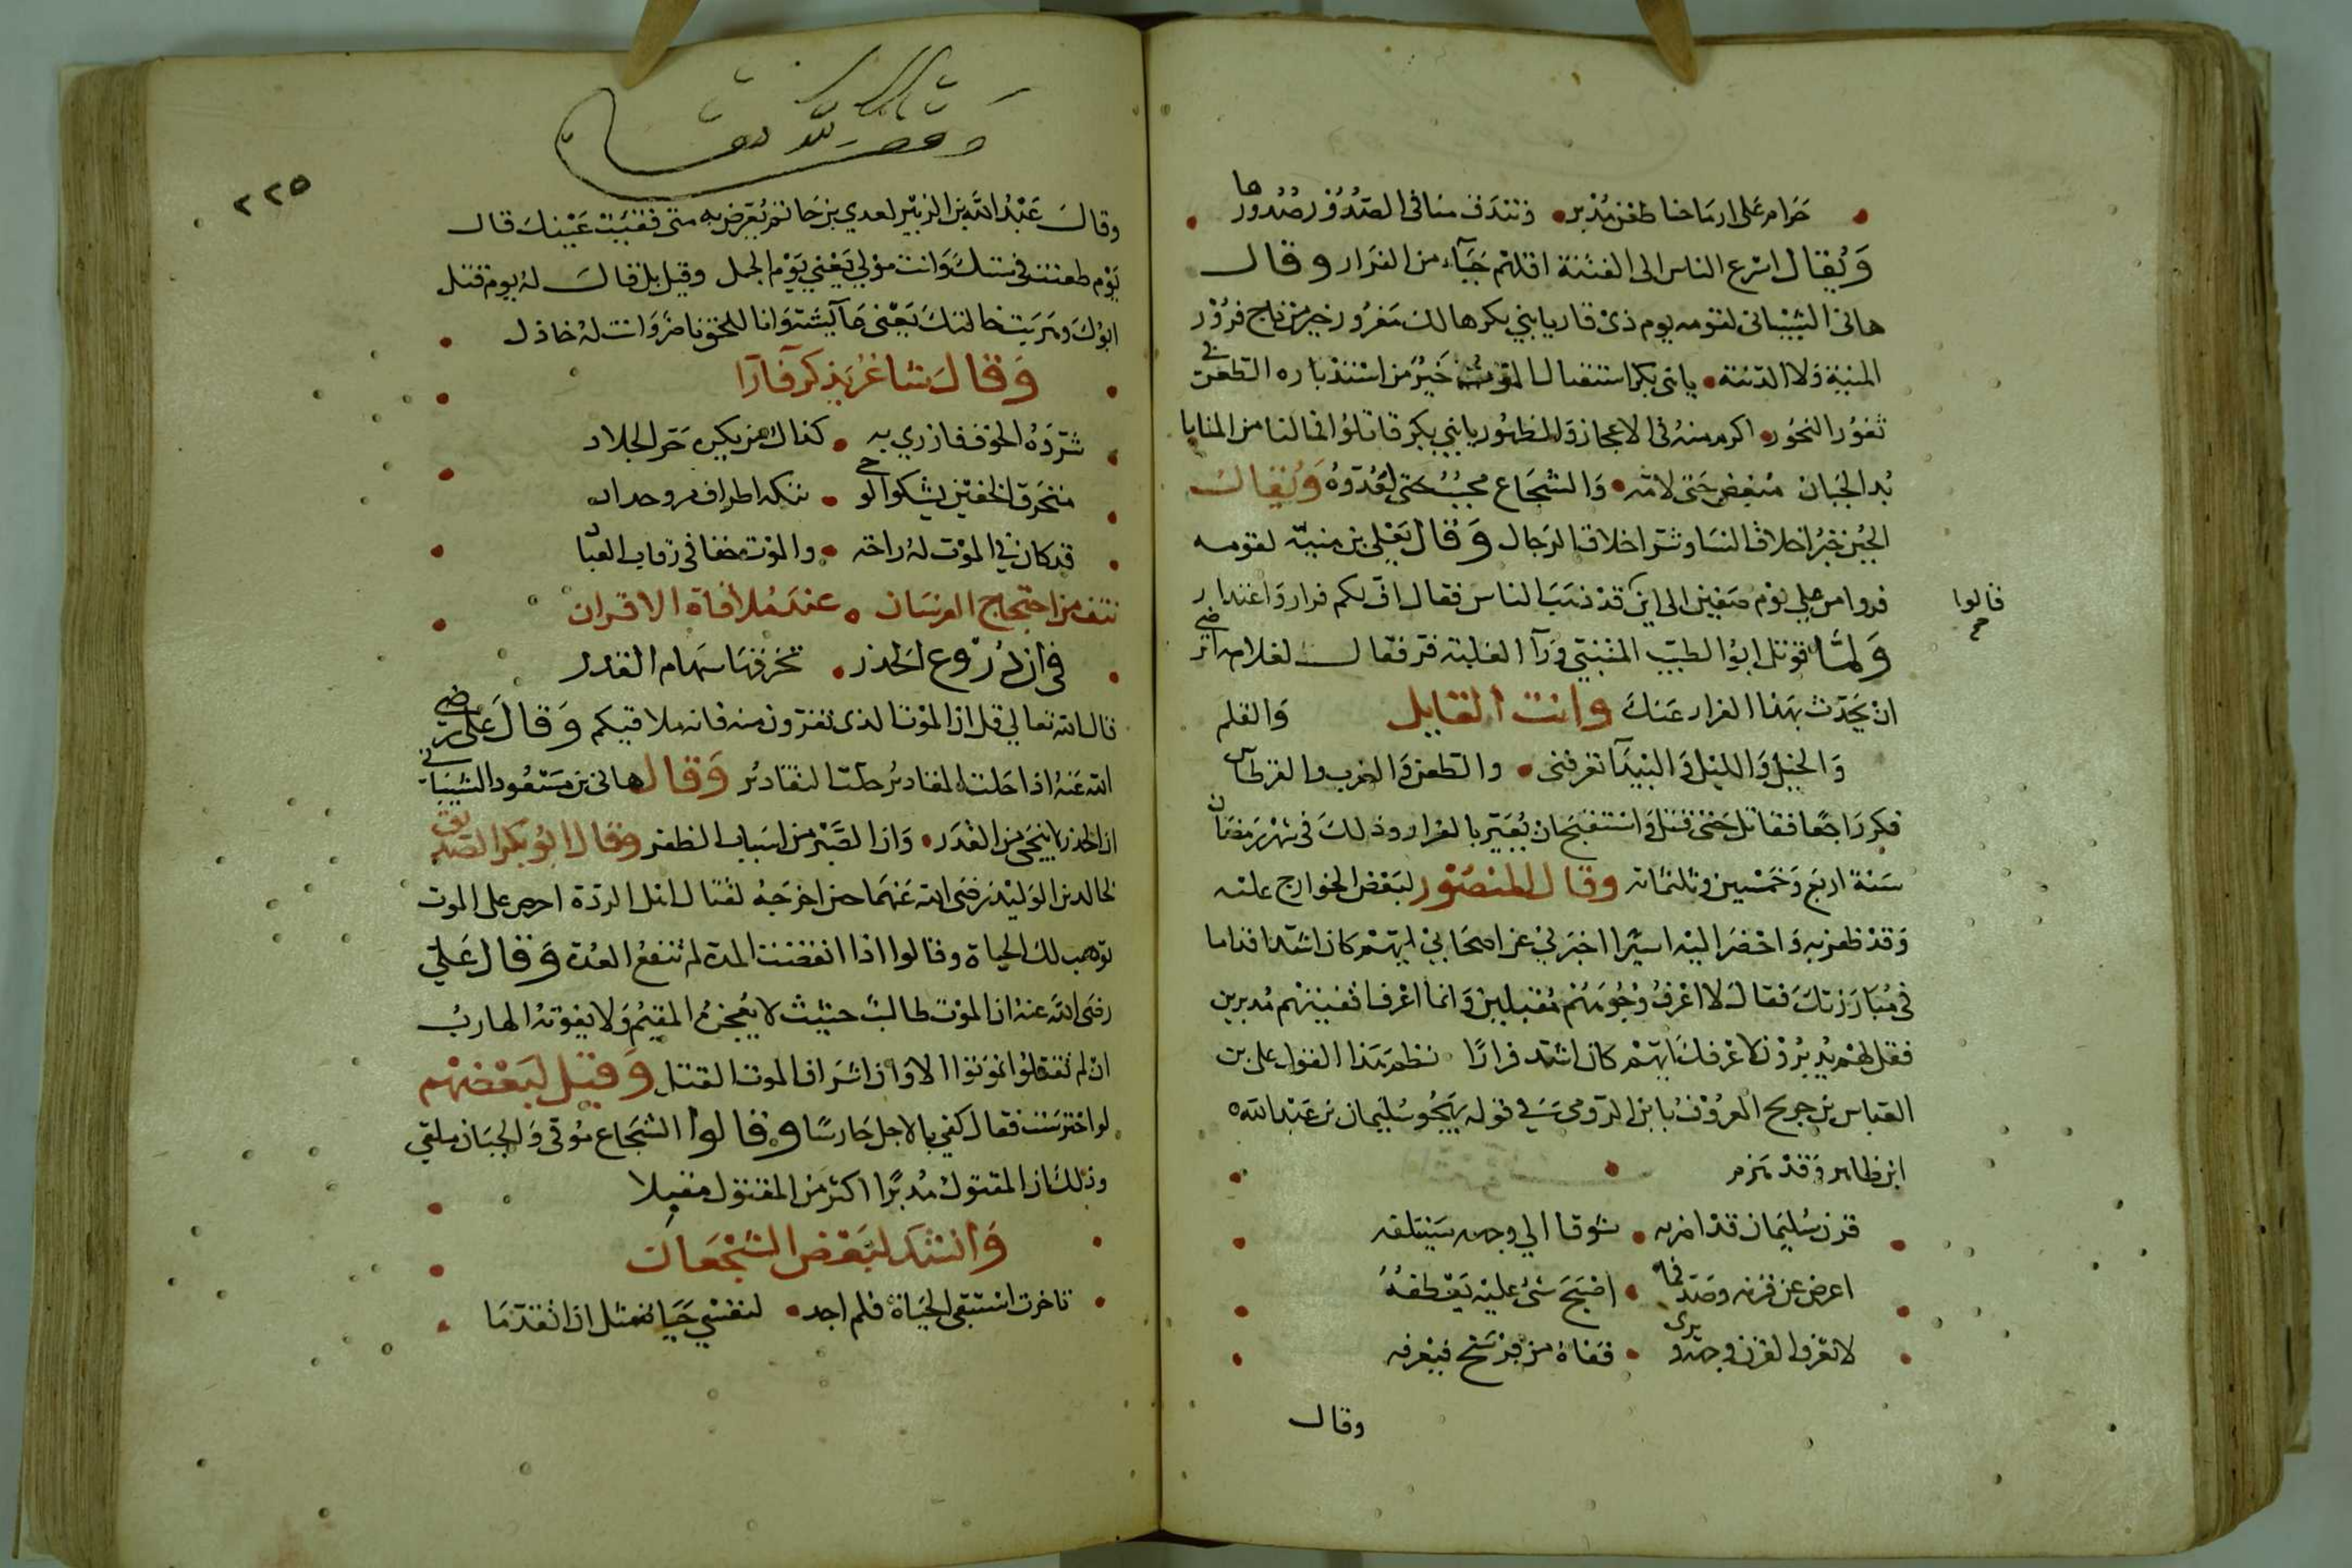 حرام على ارماحنا طعن مدبر • وتندق منا في الصدور صدورها
ويقال اسرع الناس الى الفتنة اقلهم حياء من الفرار وقال
هانى الشيبانى لقومه يوم ذى قار يابني بكر هالك معذور خير من ناج فرور
المنية ولا الدنية • يابنى بكر استقبال الموت خير من استدباره الطعن في
ثغور النحور • اكرم منه فى الاعجاز والظهور يابني بكر قاتلوا فما لنا من المنايا
بد الجبان مبغض حتى لامه • والشجاع محبب حتى لعدوه ويقال
الجبن خير اخلاق النسا وشر اخلاق الرجال وقال يعلى بن منبه لقومه
قالوا
فروا من على يوم صفين الى اين قد ذهب الناس فقال اف لكم فرار واعتذار
ولما قوتل ابو الطيب المتنبي ورآا الغلبة فر فقال لغلامه اترضى
ان يحدث بهذا الفرار عنك وانت القايل
والخيل والليل والبيدآ تعرفنى • والطعن والضرب والقرطاس والقلم
فكر راجعا فقاتل حتى قتل واستقبح ان يعير بالفرار وذلك فى شهر رمضان
سنة اربع وخمسين وثلثماته وقال المنصور لبعض الخوارج عليه
وقد ظفر به واحضر اليه اسيرا اخبرني عن اصحابي ايهم كان اشد اقداما
في مبارزتك فقال لا اعرف وجوههم مقبلين وانما اعرف اقفيتهم مدبرين
فقل لهم يدبرون لاعرفك ايهم كان اشد فرارا نظم هذا القول على بن
العباس بن جريح المعروف بابن الرومي في قوله يهجو سليمان بن عبد الله
ابن طاهر وقد هزم
قرن سليمان قد اضر به • شوقا الي وجهه سيتلفه
اعرض عن قرنه وصد فما • اصبح شئ عليه يعطفه
لا تعرف القرن وجهه ويرى • قفاه من فرسخ فيعرفه
وقال
وقف لله تعالى
٢٢٥
وقال عبد الله بن الزبير لعدي بن حاتم يعرض به متى فقئت عينك قال
يوم طعنت في استك وانت مولي يعني يوم الجمل وقيل بل قال له يوم قتل
ابوك وضربت خالتك يعنى عآيشة وانا للحق ناصر وانت له خاذل
وقال شاعر يذكر فآرا
شرده الخوف فازري به • كذاك من يكره حر الجلاد
منخرق الخفين يشكوا الوحى • تنكبه اطراف مرو حداد
قد كان في الموت له راحة • والموت حقا فى رقاب العباد
نتف من احتجاج الفرسان • عند ملاقاة الاقران
فى ان دروع الحذر • تخرقها سهام القدر
قال الله تعالي قل ان الموت الذى تفرون منه فانه ملاقيكم وقال على رضي
الله عنه اذا حلت المقادير حلت التقادير وقال هانى بن مسعود الشيباني
ان الحذر لا ينجى من القدر • وان الصبر من اسباب الظفر وقال ابو بكر الصديق
لخالد بن الوليد رضى الله عنهما حين اخرجه لقتال اهل الردة احرص على الموت
توهب لك الحياة وقالوا اذا انقضت المدة لم تنفع العدة وقال على
رضى الله عنه ان الموت طالب حثيث لا يعجزه المقيم ولا يفوته الهارب
ان لم تقتلوا تموتوا الا وان اشراف الموت القتل وقيل لبعضهم
لو احترست فقال كفي بالاجل حارسا وقالوا الشجاع موقى والجبان ملقى
وذلك ان المقتول مدبرا اكثر من المقتول مقبلا
وانشد لبعض الشجعان
تاخرت استبقى الحياة فلم اجد • لنفسي حياة مثل ان اتقدما